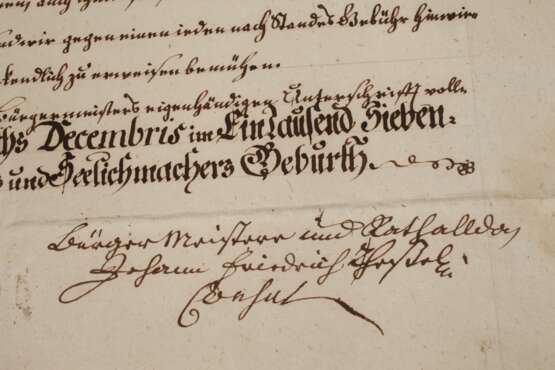 und wir gegen einen ieden nach Standes Gebühr hinwie-
kendlich zu erweisen bemühen.
Bürgermeisters eigenhändigen Unterschrifft voll-
Decembris im Ein Tausend Sieben-
und Seelichmachers Geburth.
Bürger Meistere und Rath allda
Johann Friedrich
Consul